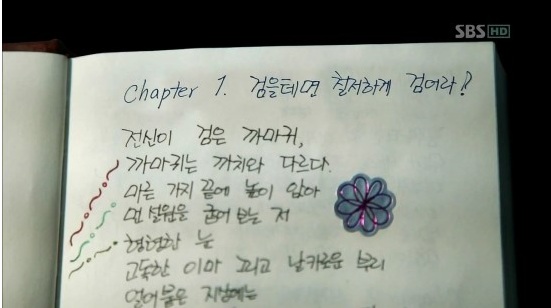 SBS HD
Chapter 1. 검을테면 철저하게 검어라!
전신이 검은 까마귀,
까마귀는 까치와 다르다.
마른 가지 끝에 높이 앉아
먼 설원을 굽어 보는 저
형형한 눈
고독한 이마 그리고 날카로운 부리
얼어붙은 지상에는